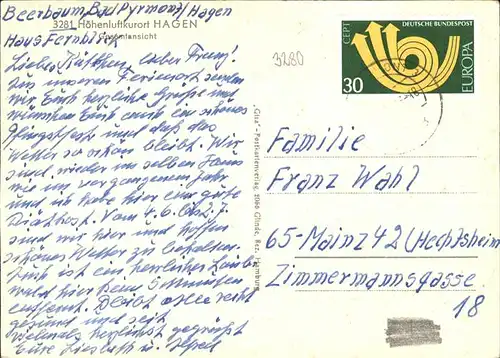 Beerbaum, Bad Pyrmont/Hagen
3281 Höhenluftkurort HAGEN
Haus Fernblick
Gesamtansicht
Liebes Käthchen, lieber Franz!
Aus unserem Ferienort senden
wir Euch herzliche Grüße und
wünschen Euch auch ein schönes
Pfingstfest und daß das
Wetter so schön bleibt. Wir
sind wieder im selben Haus
wie im vergangenen Jahr
und ich habe hier eine gute
Diätkost. Vom 4.6. bis
sind wir hier und hoffen
schönes Wetter zu behalten.
Auch ist ein herrlicher Laub
wald hier dem 5 Minuten
entfernt. Bleibt alle recht
gesund und seid
vielmals herzlichst gegrüßt
Eure Lieselott u. Alfred
3280
"Cita"-Postkartenverlag, 2056 Glinde, Bez. Hamburg
CEPT
DEUTSCHE BUNDESPOST
EUROPA
30
Familie
Franz Wahl
65-Mainz 42 (Hechtsheim
Zimmermannsgasse
18